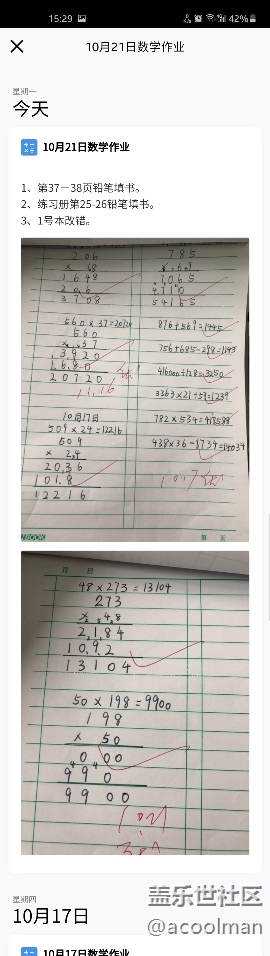 15:29
42%
10月21日数学作业
星期一
今天
10月21日数学作业
1、第37—38页铅笔填书。
2、练习册第25-26铅笔填书。
3、1号本改错。
206
1648
3708
560×37=20720
560
×37
3920
1680
20720
10月17日
509×24=12216
509
× 24
2036
1018
12216
785
7065
4710
54165
876+569=1445
782×534=417588
438×36-1734=14034
月 日
48×273=13104
273
× 48
2184
1092
13104
50×198=9900
198
× 50
000
990
9900
盖乐世社区
@acoolman
星期四
10月17日
10月17日数学作业